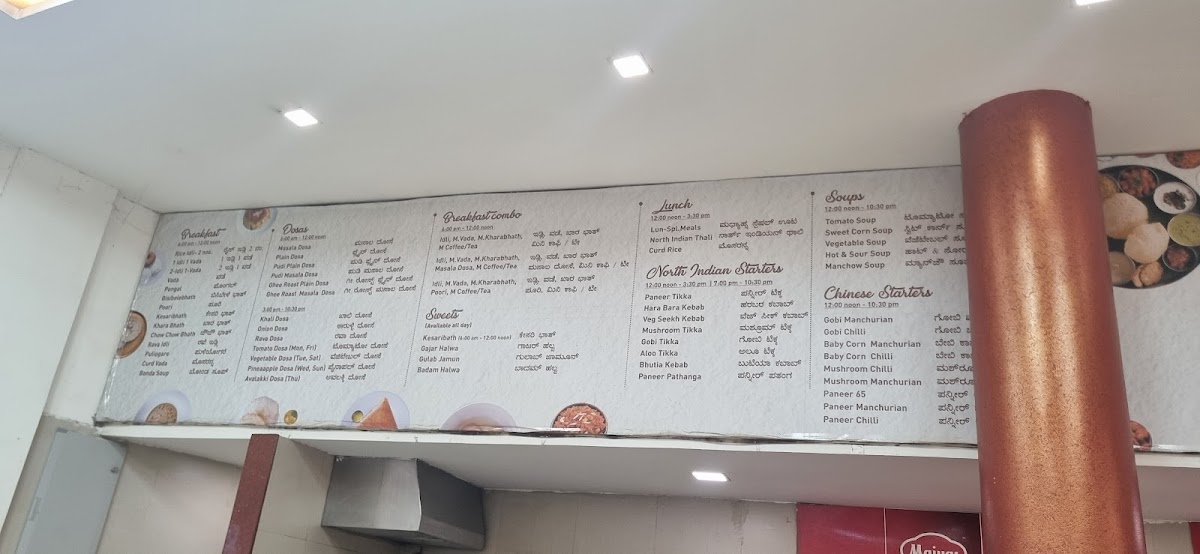 Breakfast
6:00 am - 12:00 noon
Rice Idli- 2 nos.
1 Idli 1 Vada
2-Idli 1-Vada
Vada
Pongal
Bisibelebhath
Poori
Kesaribhath
Khara Bhath
Chow Chow Bhath
Rava Idli
Puliogare
Curd Vada
Bonda Soup
ಪೊಂಗಲ್
ಪೂರಿ
ಕೇಸರಿ ಭಾತ್
ಖಾರ ಭಾತ್
ಚೌಚೌ ಭಾತ್
ರವೆ ಇಡ್ಲಿ
Dosas
6:00 am - 12:00 noon
Masala Dosa ಮಸಾಲ ದೋಸೆ
Plain Dosa ಪ್ಲೈನ್ ದೋಸೆ
Pudi Plain Dosa ಪುಡಿ ಪ್ಲೈನ್ ದೋಸೆ
Pudi Masala Dosa ಪುಡಿ ಮಸಾಲ ದೋಸೆ
Ghee Roast Plain Dosa ಗೀ ರೋಸ್ಟ್ ಪ್ಲೈನ್ ದೋಸೆ
Ghee Roast Masala Dosa ಗೀ ರೋಸ್ಟ್ ಮಸಾಲ ದೋಸೆ
3:00 pm - 10:30 pm
Khali Dosa ಖಾಲಿ ದೋಸೆ
Onion Dosa ದೋಸೆ
Rava Dosa ರವಾ ದೋಸೆ
Tomato Dosa (Mon, Fri) ಟೊಮ್ಯಾಟೋ ದೋಸೆ
Vegetable Dosa (Tue, Sat) ವೆಜಿಟೇಬಲ್ ದೋಸೆ
Pineaapple Dosa (Wed, Sun) ಪೈನಾಪಲ್ ದೋಸೆ
Avalakki Dosa (Thu) ಅವಲಕ್ಕಿ ದೋಸೆ
Breakfast combo
6:00 am - 12:00 noon
Idli, M.Vada, M.Kharabhath, ಇಡ್ಲಿ, ವಡೆ, ಖಾರ ಭಾತ್
M Coffee/Tea ಮಿನಿ ಕಾಫಿ / ಟೀ
Idli, M.Vada, M.Kharabhath, ಇಡ್ಲಿ, ವಡೆ, ಖಾರ ಭಾತ್
Masala Dosa, M Coffee/Tea ಮಸಾಲ ದೋಸೆ, ಮಿನಿ ಕಾಫಿ / ಟೀ
Idli, M.Vada, M.Kharabhath, ಇಡ್ಲಿ, ವಡೆ, ಖಾರ ಭಾತ್
Poori, M Coffee/Tea ಪೂರಿ, ಮಿನಿ ಕಾಫಿ / ಟೀ
Sweets
(Available all day)
Kesaribath (6:00 am - 12:00 noon) ಕೇಸರಿ ಭಾತ್
Gajar Halwa ಗಾಜರ್ ಹಲ್ವ
Gulab Jamun ಗುಲಾಬ್ ಜಾಮೂನ್
Badam Halwa ಬಾದಾಮ್ ಹಲ್ವ
Lunch
12:00 noon - 3:30 pm
Lun-Spl.Meals ಮಧ್ಯಾಹ್ನ ಸ್ಪೆಷಲ್ ಊಟ
North Indian Thali ನಾರ್ತ್ ಇಂಡಿಯನ್ ಥಾಲಿ
Curd Rice ಮೊಸರನ್ನ
North Indian Starters
12:00 noon - 3:30 pm | 7:00 pm - 10:30 pm
Paneer Tikka ಪನ್ನೀರ್ ಟಿಕ್ಕ
Hara Bara Kebab ಹರಬರ ಕಬಾಬ್
Veg Seekh Kebab ವೆಜ್ ಸೀಕ್ ಕಬಾಬ್
Mushroom Tikka ಮಶ್ರೂಮ್ ಟಿಕ್ಕ
Gobi Tikka ಗೋಬಿ ಟಿಕ್ಕ
Aloo Tikka ಆಲೂ ಟಿಕ್ಕ
Bhutia Kebab ಬುಟಿಯಾ ಕಬಾಬ್
Paneer Pathanga ಪನ್ನೀರ್ ಪತಂಗ
Soups
12:00 noon - 10:30 pm
Tomato Soup ಟೊಮ್ಯಾಟೋ
Sweet Corn Soup ಸ್ವೀಟ್ ಕಾರ್ನ್
Vegetable Soup ವೆಜಿಟೇಬಲ್
Hot & Sour Soup ಹಾಟ್ &
Manchow Soup ಮ್ಯಾನ್‌ಚೌ
Chinese Starters
12:00 noon - 10:30 pm
Gobi Manchurian ಗೋಬಿ
Gobi Chilli ಗೋಬಿ
Baby Corn Manchurian ಬೇಬಿ
Baby Corn Chilli ಬೇಬಿ
Mushroom Chilli
Mushroom Manchurian
Paneer 65 ಪನ್ನೀರ್
Paneer Manchurian ಪನ್ನೀರ್
Paneer Chilli ಪನ್ನೀರ್